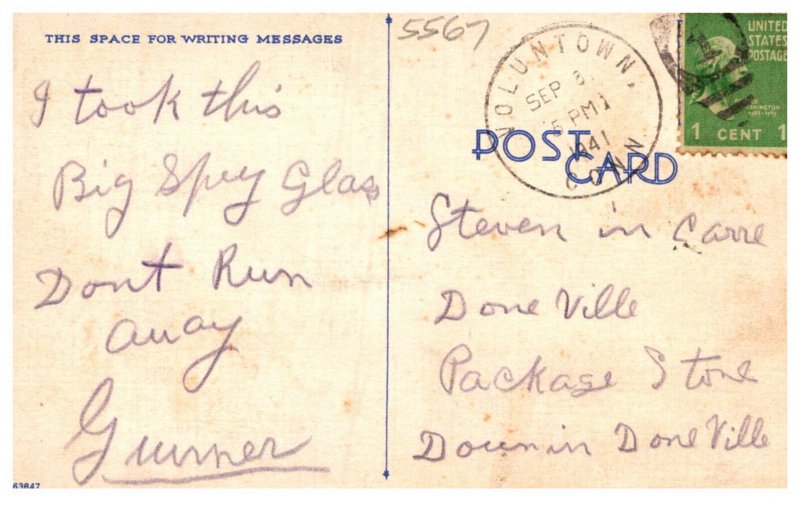 THIS SPACE FOR WRITING MESSAGES
I took this
Big Spey Glas
Dont Run
away
Gunner
63647
5567
VOLUNTOWN, CONN.
SEP 3
5 PM
1941
UNITED
STATES
POSTAGE
1 CENT 1
POST CARD
Steven in Carre
Done Ville
Package Store
Down in Done Ville